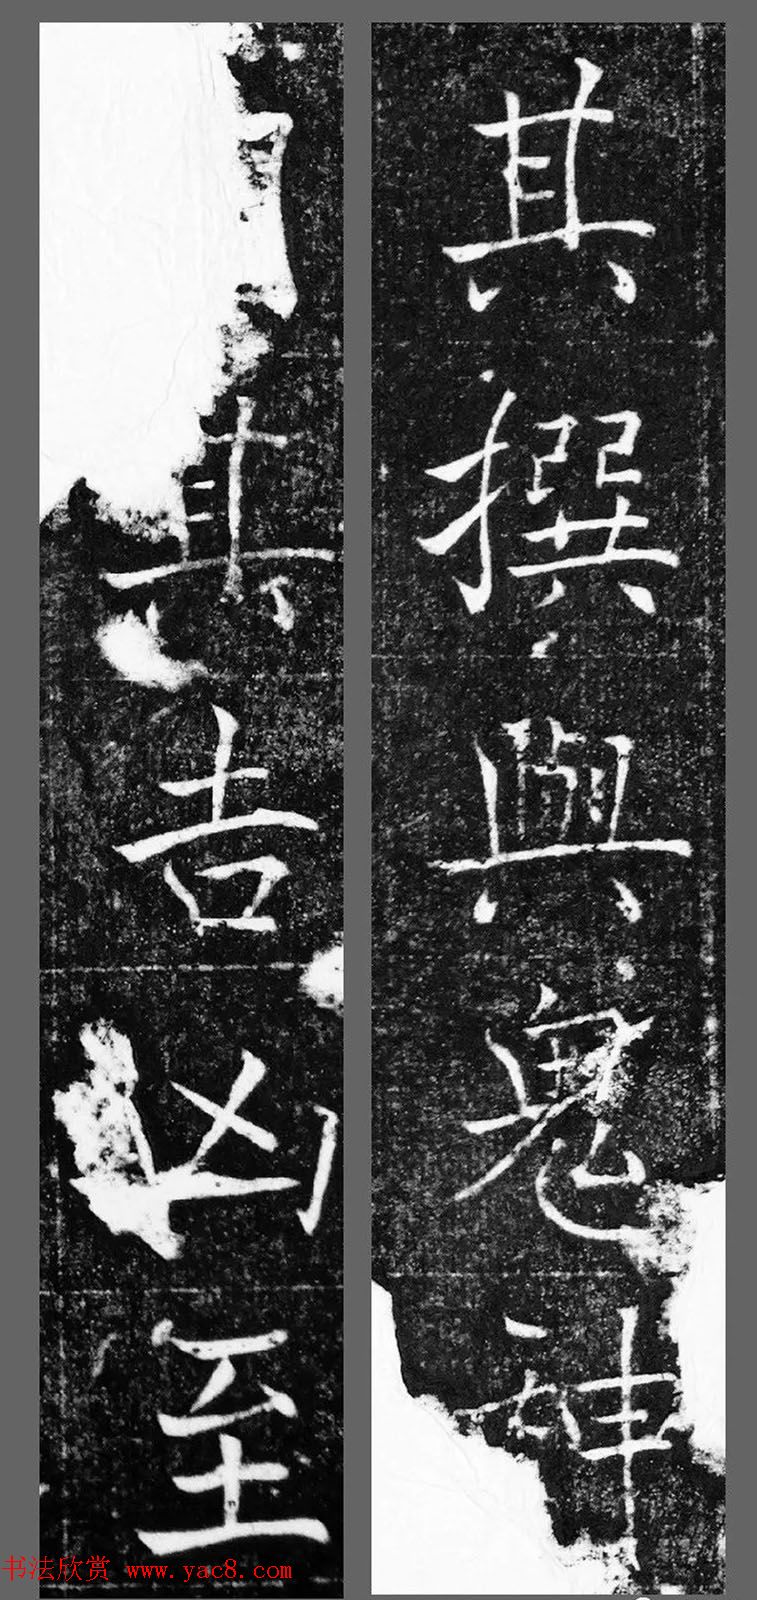 其撰與鬼神
其吉凶至
书法欣赏 www.yac8.com